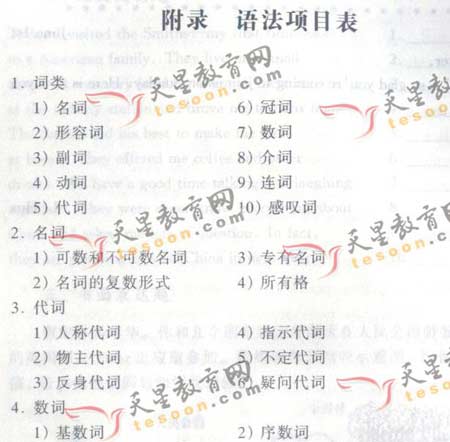 附录 语法项目表
1. 词类
1) 名词 6) 冠词
2) 形容词 7) 数词
3) 副词 8) 介词
4) 动词 9) 连词
5) 代词 10) 感叹词
2. 名词
1) 可数和不可数名词 3) 专有名词
2) 名词的复数形式 4) 所有格
3. 代词
1) 人称代词 4) 指示代词
2) 物主代词 5) 不定代词
3) 反身代词 6) 疑问代词
4. 数词
1) 基数词 2) 序数词
天星教育网
tesoon.com
天星教育网
tesoon.com
天星教育网
tesoon.com
天星教育网
tesoon.com
天星教育网
tesoon.com